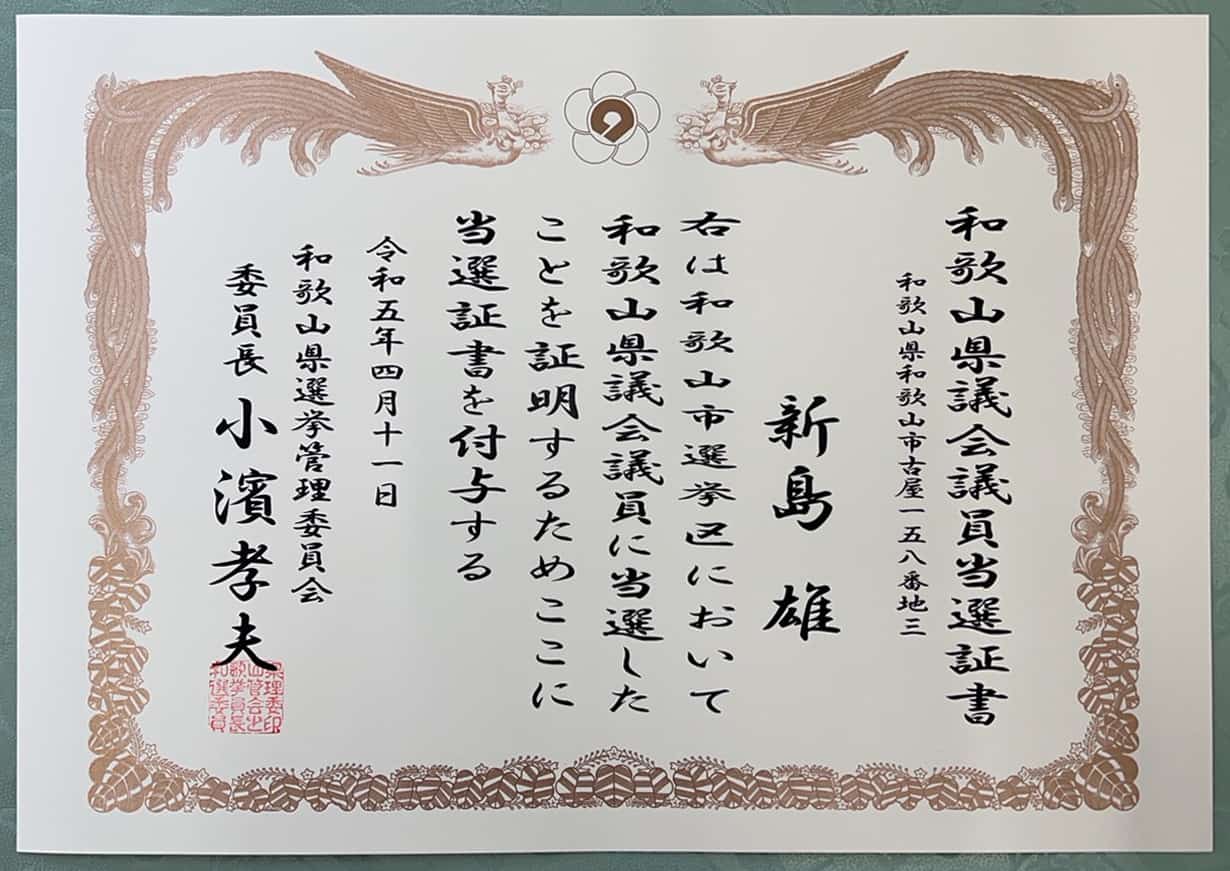 和歌山県議会議員当選証書
和歌山県和歌山市古屋一五八番地三
新島雄
右は和歌山市選挙区において
和歌山県議会議員に当選した
ことを証明するためここに
当選証書を付与する
令和五年四月十一日
和歌山県選挙管理委員会
委員長 小濱孝夫
和歌山県
選挙管理
委員会委
員長之印